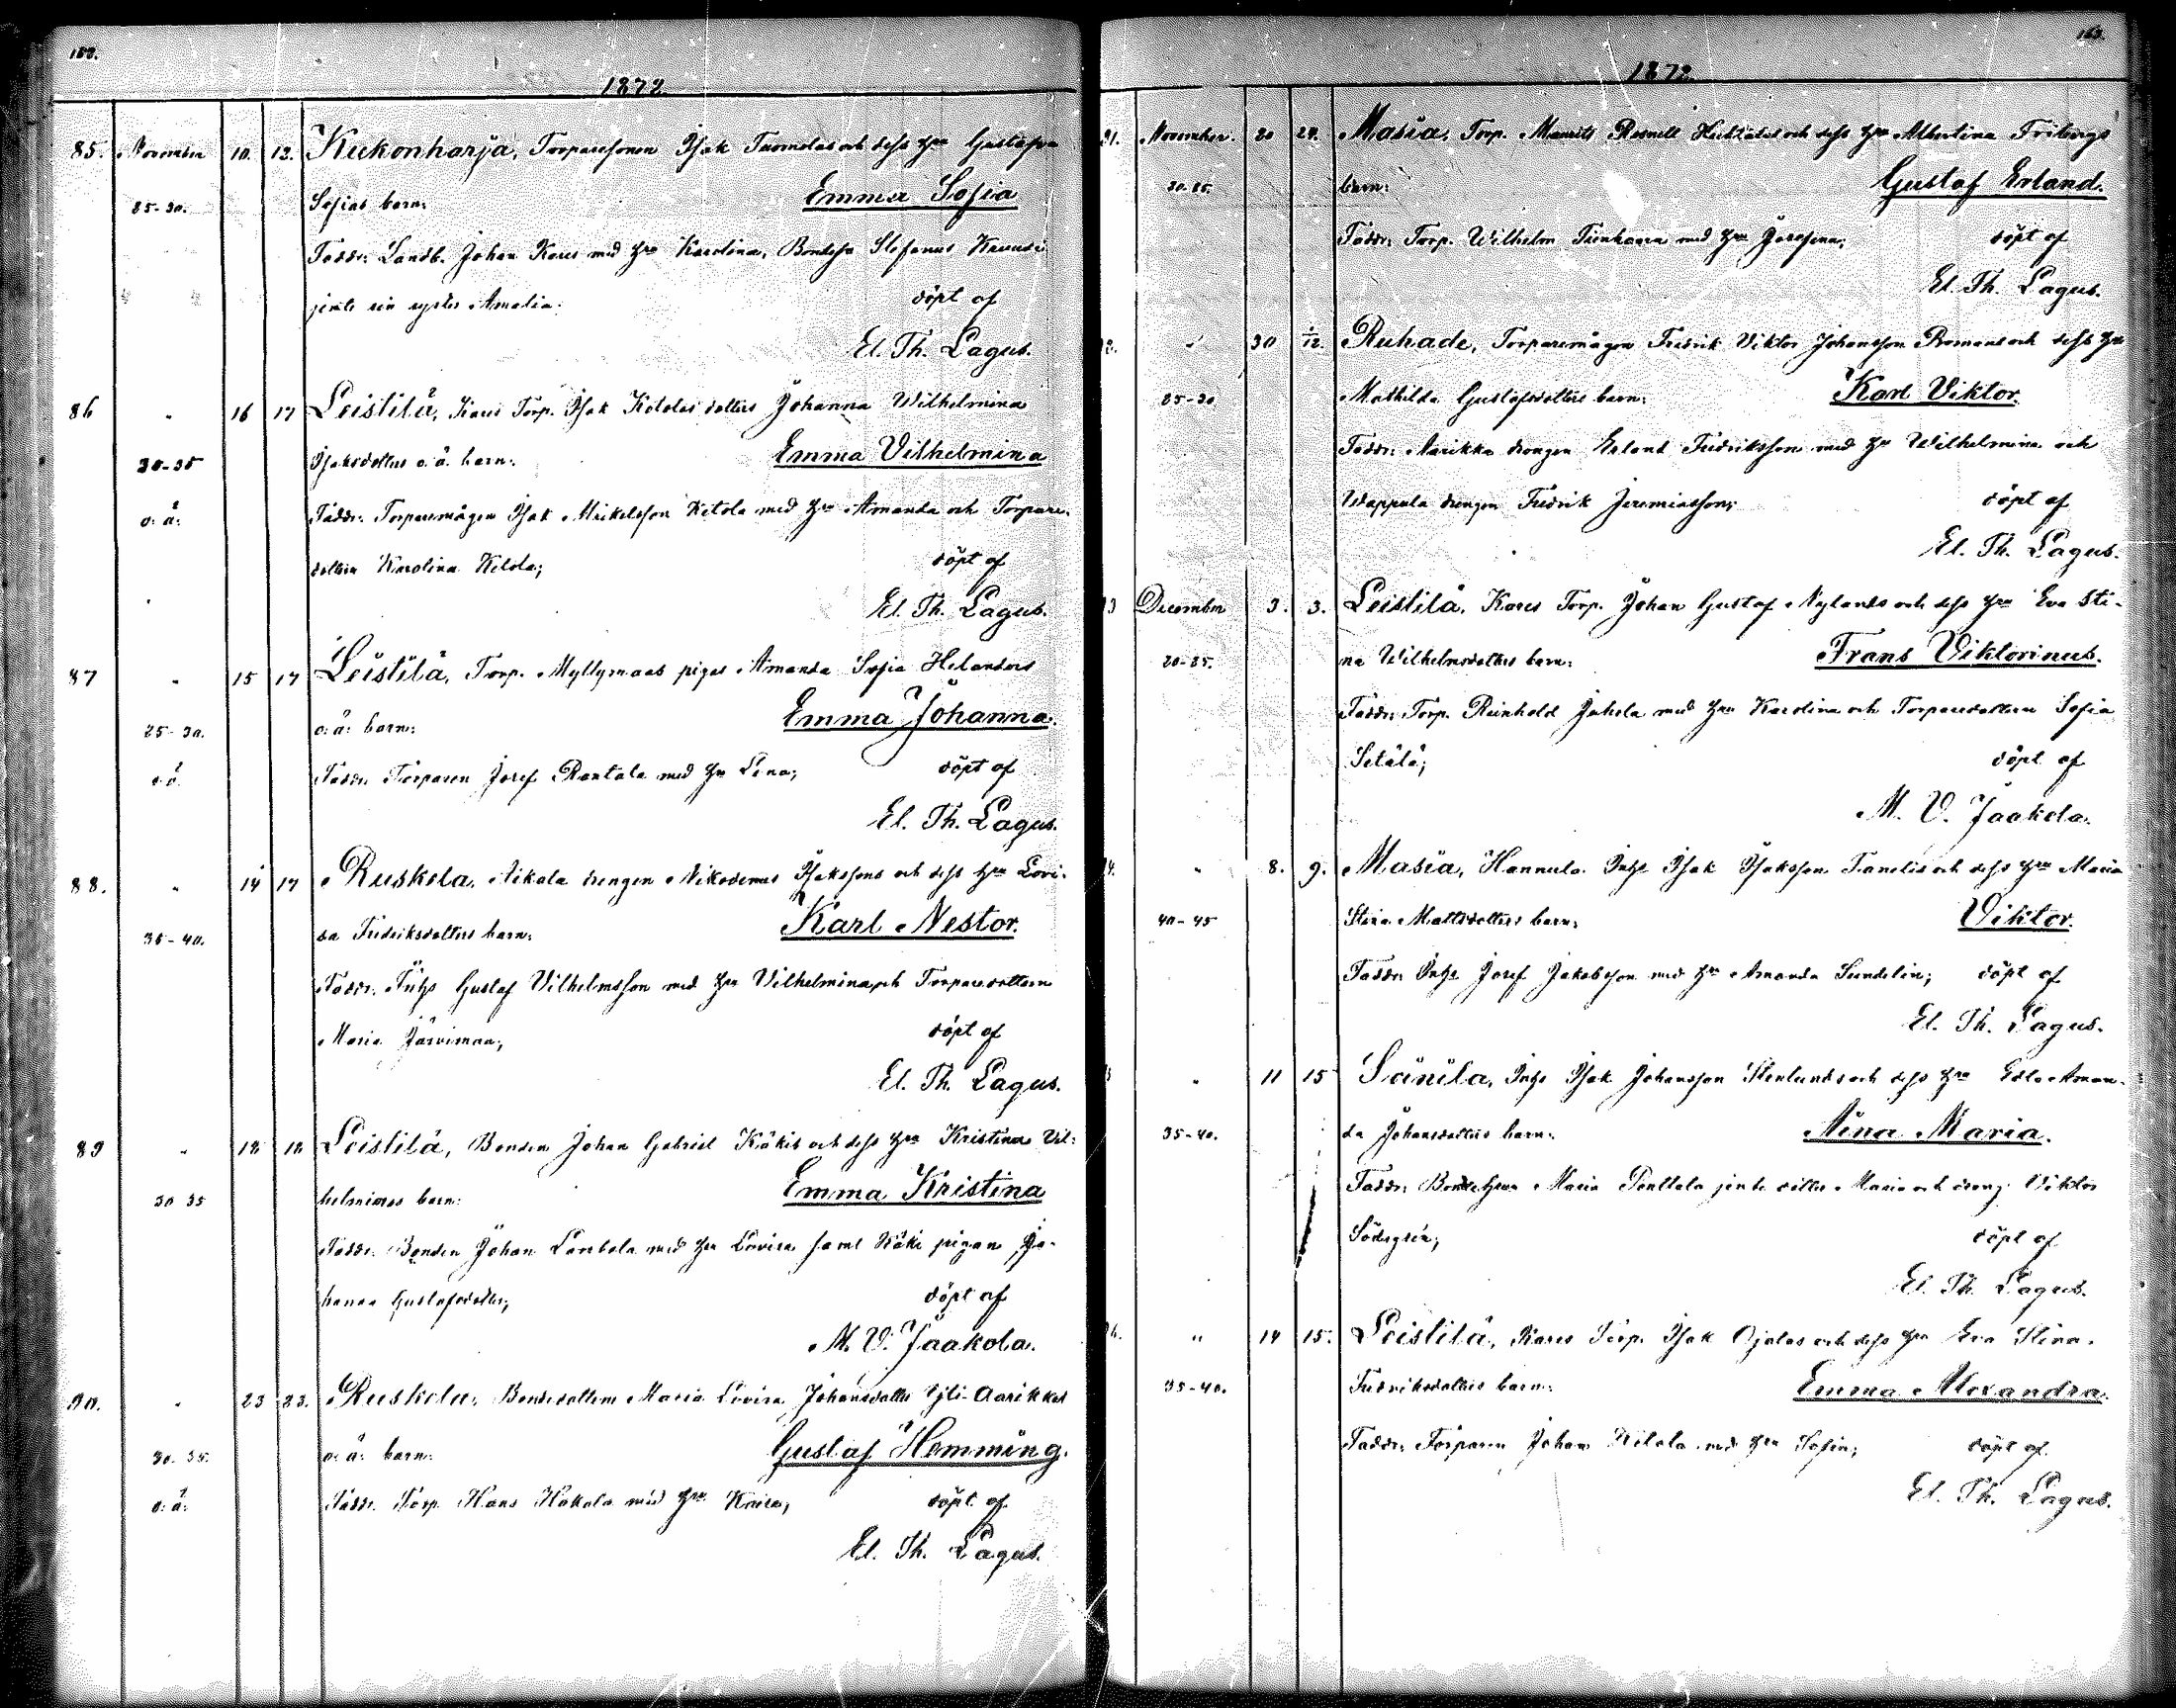 1872
85. November 10. 12. Kukonharja, Torparesonen Isak Tuomolas och dess hu Gustafva
25-30. Sofias barn: Emma Sofia
Faddr: Landb. Johan Kares med hu Karolina, Bondeso Stefanus
jemte sin syster Amalia: döpt af
El. Th. Lagus.
86 " 16 17 Leistilä, Kares Torp. Isak Ketolas dotters Johanna Wilhelmina
30-35 Isaksdotters o. ä. barn: Emma Vilhelmina
o: ä: Faddr: Torparemågen Isak Mikelsson Ketola med hu Amanda och Torpare-
dottern Karolina Ketola; döpt af
El. Th. Lagus.
87 " 15 17 Leistilä, Torp. Myllymaas pigas Amanda Sofia Helanders
25-30. o: ä: barn: Emma Johanna.
o: ä: Faddr: Torparen Josef Rantala med hu Lena; döpt af
El. Th. Lagus.
88. " 14 17 Ruskela, Aikala drengen Nikodemus Isakssons och dess hu Lovi-
35-40. sa Fredriksdotters barn: Karl Nestor.
Faddr: Inhs Gustaf Vilhelmsson med hu Vilhelmina och Torparedottern
Maria Järvimaa; döpt af
El. Th. Lagus.
89 " 18 18 Leistilä, Bonden Johan Gabriel Käkis och dess hu Kristina Vil-
30 35 helminas barn: Emma Kristina
Faddr: Bonden Johan Lontola med hu Lovisa samt Käki pigan Jo-
hanna Gustafsdotter; döpt af
M. V. Jaakola.
90. " 23 23. Ruskela, Bondedottern Maria Lovisa Johansdotter Yli-Aarikkas
30. 35. o: ä: barn: Gustaf Hemming.
o: ä: Faddr: Torp. Hans Hakala med hu Kaisa; döpt af
El. Th. Lagus.
163.
1872
91. November. 20 24. Masia, Torp. Maurits Rosnell och dess hu Albertina Fribergs
20-25. barn: Gustaf Erland.
Faddr: Torp. Wilhelm med hu Josefina; döpt af
El. Th. Lagus.
" 30 1/12. Ruhade, Torparemågen Fredrik Viktor Johansson Romans och dess hu
25-30 Mathilda Gustafsdotters barn: Karl Viktor
Faddr: Aarikka drengen Erland Fredriksson med hu Wilhelmina och
Wappula drengen Fredrik Jeremiasson; döpt af
El. Th. Lagus.
December 3. 3. Leistilä, Kares Torp. Johan Gustaf Nylands och dess hu Eva Sti-
20-25. na Wilhelmsdotters barn: Frans Viktorinus.
Faddr: Torp. Reinhold Juhola med hu Karolina och Torparedottern Sofia
Setälä; döpt af
M. V. Jaakola.
" 8. 9. Masia, Hannula Inhs Isak Isaksson Tanelis och dess hu Maria
40-45 Stina Mattsdotters barn: Viktor.
Faddr: Inhs Josef Jakobsson med hu Amanda Sundelin; döpt af
El. Th. Lagus.
" 11 15 Sänilä, Inhs Isak Johansson Stenlunds och dess hu Edla Aman-
35-40. da Johansdotters barn: Aina Maria.
Faddr: Bondehu Maria Penttala jemte dotter Maria och dreng Viktor
Södergrén; döpt af
El. Th. Lagus.
" 14 15. Leistilä, Kares Torp. Isak Ojalas och dess hu Eva Stina
35-40. Fredriksdotters barn: Emma Alexandra.
Faddr: Torparen Johan Ketola med hu Sofia; döpt af
El. Th. Lagus.